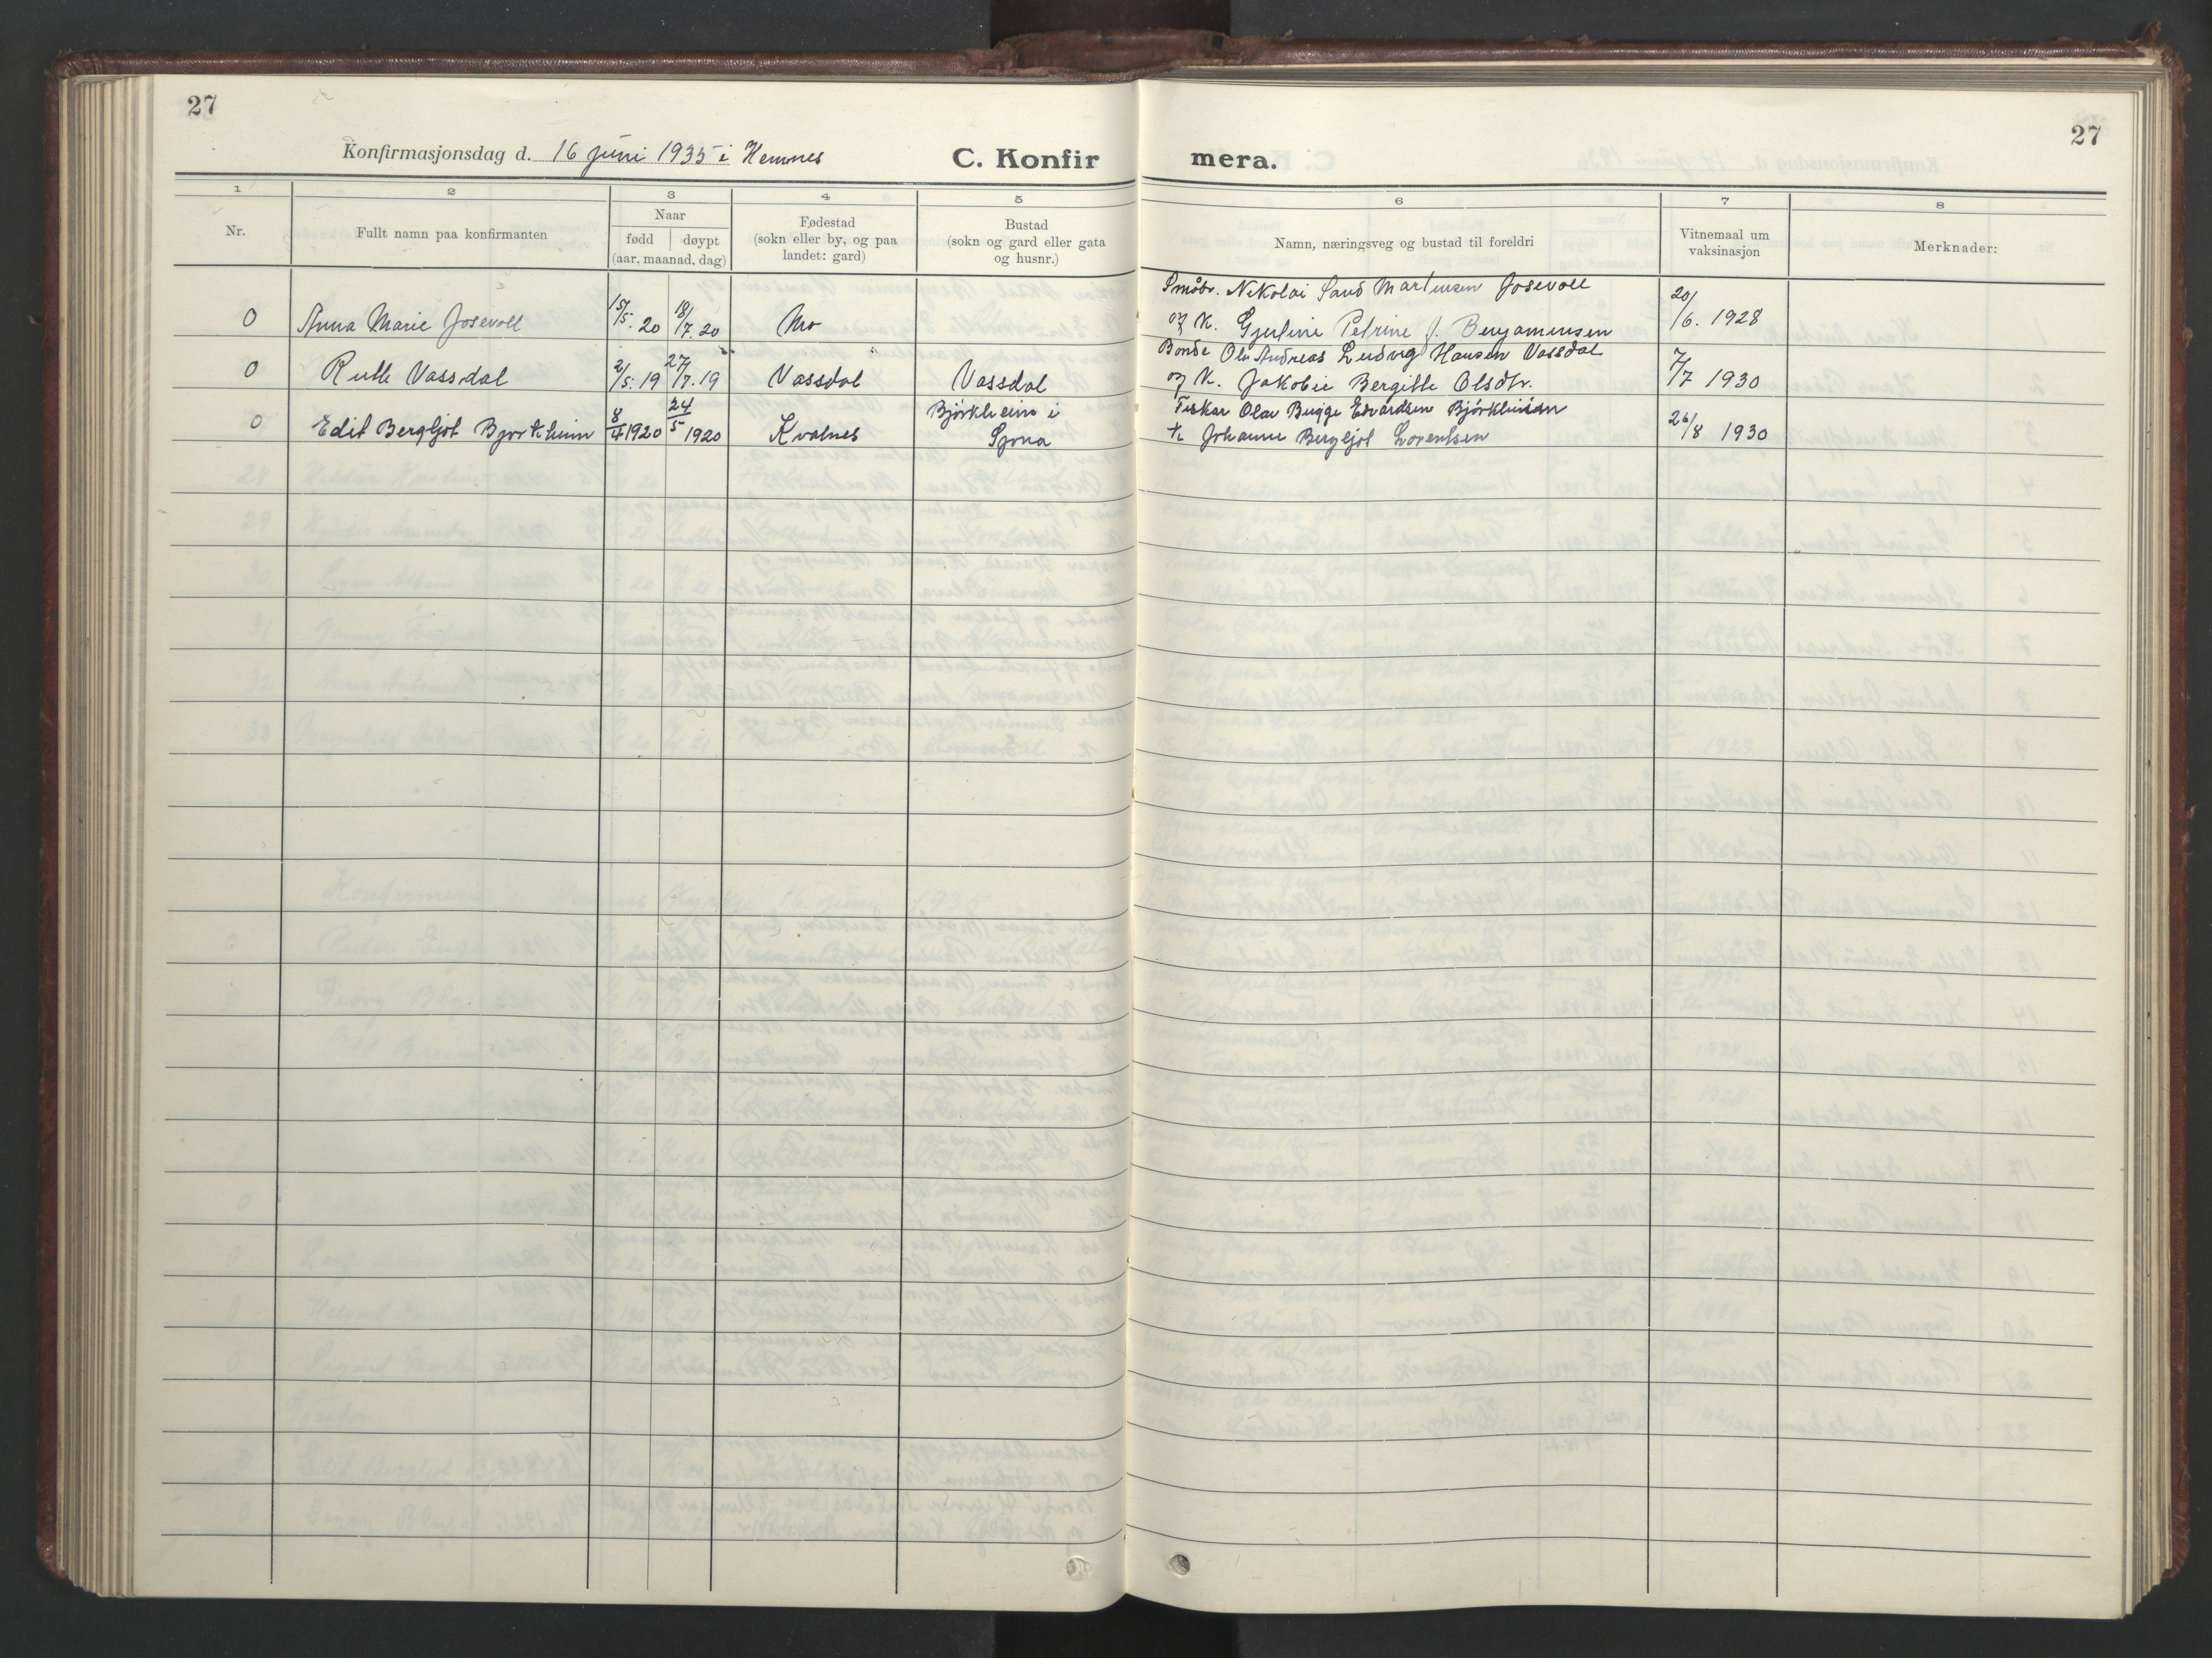 27
27
Konfirmasjonsdag d. 16 juni 1935 i Hemnes
C. Konfir mera.
1 2 3 4 5 6 7 8
Nr.
Fullt namn paa konfirmanten
Naar
fødd døypt
(aar, maanad, dag)
Fødestad
(sokn eller by, og paa
landet: gard)
Bustad
(sokn og gard eller gata
og husnr.)
Namn, næringsveg og bustad til foreldri
Vitnemaal um
vaksinasjon
Merknader:
0 Anna Marie Josevoll 15/5. 20 18/7. 20 Mo
Småbr. Nikolai Sand Martinsen Josevoll
og K. Gjertine Petrine J. Benjaminsen
20/6. 1928
0 Ruth Vassdal 2/5. 19 27/7. 19 Vassdal Vassdal
Bonde Ole Andreas Ludvig Hansen Vassdal
og K. Jakobie Bergitte Olsdtr.
7/7 1930
0 Edit Bergljot Bjørkheim 8/4 1920 24/5 1920 Kvalnes
Bjørkheim i
Sjona
Fiskar Olav Bugge Edvardsen Bjørkheim
K Johanne Bergljot Lorentsen
26/8 1930